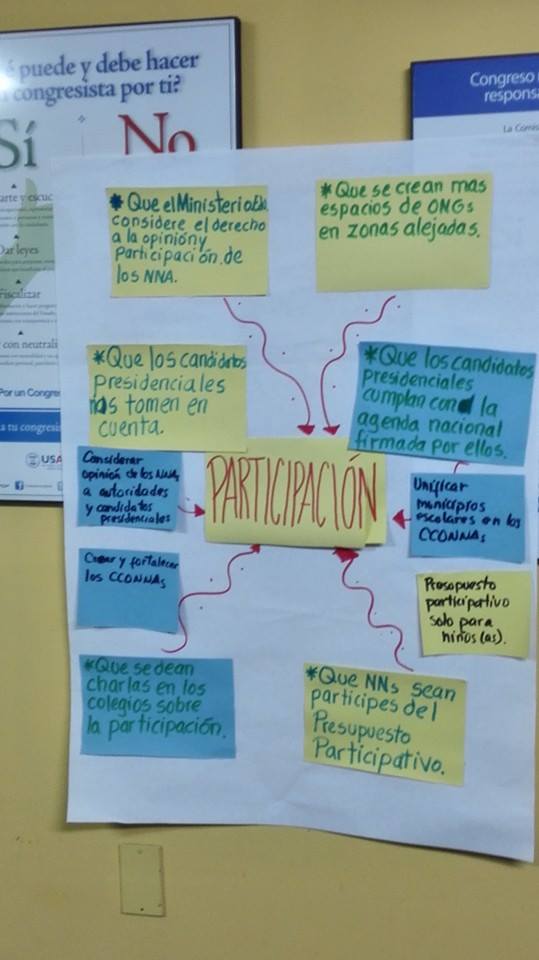 puede y debe hacer
congresista por ti?
Sí No
arte y escuc
Dar leyes
Fiscalizar
con neutrali
Por un Congre
a tu congresi
USA
Congreso
respons
La Comis
* Que el Ministerio
considere el derecho
a la opinión y
Participación de
los NNA.
* Que se crean mas
espacios de ONGs
en zonas alejadas.
* Que los candidatos
presidenciales
nos tomen en
cuenta.
* Que los candidatos
presidenciales
cumplan con la
agenda nacional
firmada por ellos.
Considerar
opinión de los NNAs
a autoridades
y candidatos
presidenciales
PARTICIPACIÓN
Unificar
municipios
escolares en los
CCONNAs
Crear y fortalecer
los CCONNAs
Presupuesto
participativo
solo para
niños (as).
* Que se dean
charlas en los
colegios sobre
la participación.
* Que NNs sean
participes del
Presupuesto
Participativo.